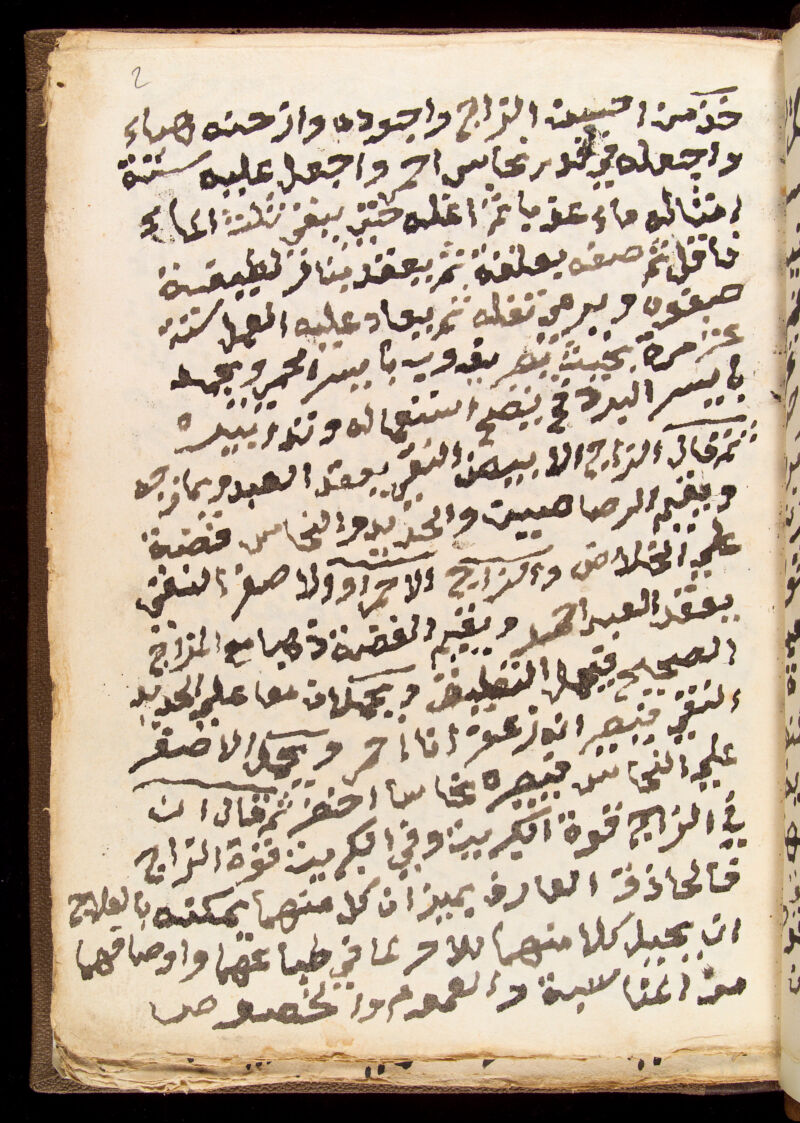 2
خذ من احسن الزاج واجوده وازحنه هباء
واجعله في قدر نحاس احمر واجعل عليه ستة
امثاله ماء عذبا ثم اغله حتى يبقى ثلث الماء
فاقل ثم صفه بعلقه ثم يعقد بنار لطيفة
صفوه ويرمى ثفله ثم يعاد عليه العمل ستة
عشر مرة بحيث يذوب بايسر الحر ويجمد
بايسر البرد استعماله وتدابيره
ثم قال الزاج الابيض النقي يعقد العبد
ويقيم الرصاصين والحديد والنحاس فضة
على الخلاص والزاج الاحمر او الاصفر النقي
يعقد العبد ويقيم الفضة ذهبا مع المزاج
الصحيح التغليظ ويحملان معا على الحديد
النقي احمر ويحمل الاصفر
على النحاس فيصيره نحاسا اخضر ثم قال ان
في الزاج قوة الكبريت وفي الكبريت قوة الزاج
فالحاذق العارف يميز ان كل منهما يمكنه بالعلاج
ان يحيل كلا منهما للاخر لما في طباعهما واوصافهما
من المناسبة والعموم والخصوص